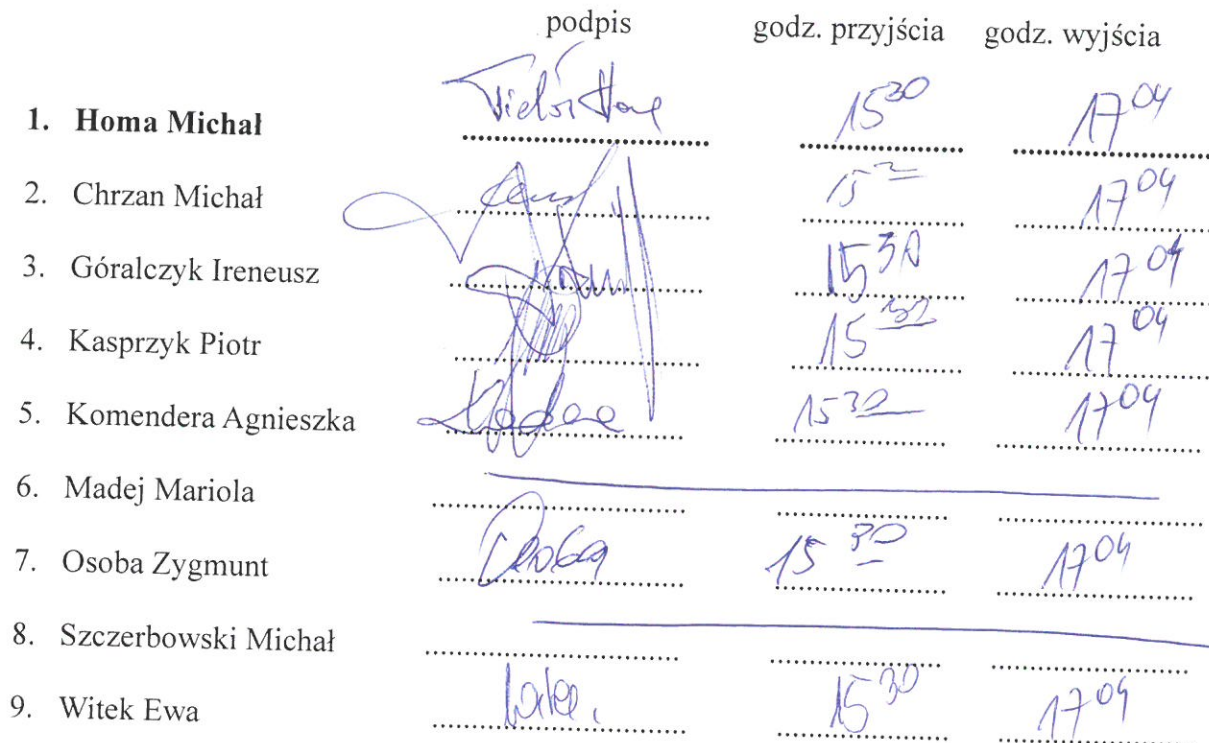 podpis godz. przyjścia godz. wyjścia
1. Homa Michał 15³⁰ 17⁰⁴
2. Chrzan Michał 17⁰⁴
3. Góralczyk Ireneusz 15³⁰ 17⁰⁴
4. Kasprzyk Piotr 17⁰⁴
5. Komendera Agnieszka 15³⁰ 17⁰⁴
6. Madej Mariola
7. Osoba Zygmunt Osoba 15³⁰ 17⁰⁴
8. Szczerbowski Michał
9. Witek Ewa Witek 15³⁰ 17⁰⁴